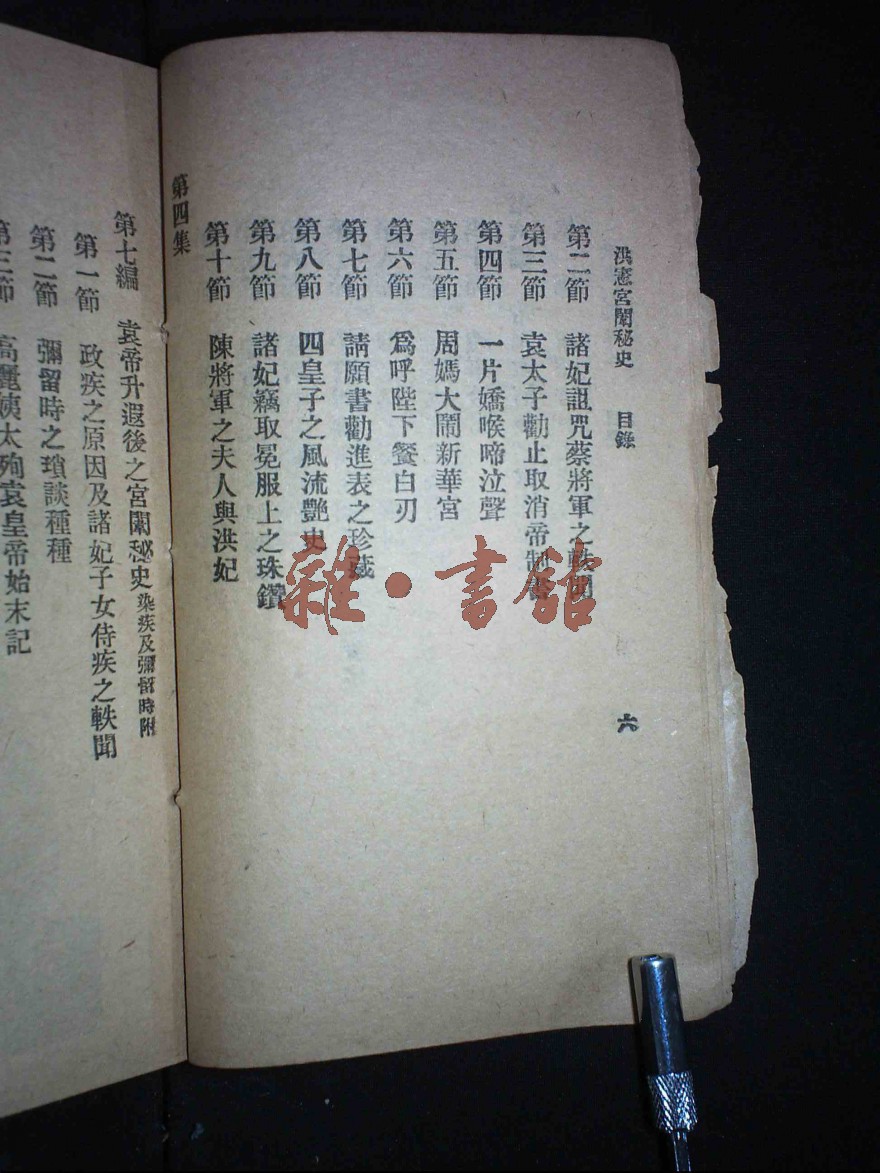 洪憲宮闈秘史　目錄　六
第二節　諸妃詛咒蔡將軍之軼聞
第三節　袁太子勸止取消帝制書
第四節　一片嬌喉啼泣聲
第五節　周媽大鬧新華宮
第六節　爲呼陛下餐白刃
第七節　請願書勸進表之珍藏
第八節　四皇子之風流艷史
第九節　諸妃竊取冕服上之珠鑽
第十節　陳將軍之夫人與洪妃
第四集
第七編　袁帝升遐後之宮闈秘史 染疾及彌留時附
第一節　政疾之原因及諸妃子女侍疾之軼聞
第二節　彌留時之瑣談種種
第三節　高麗姨太殉袁皇帝始末記
雜·書舘